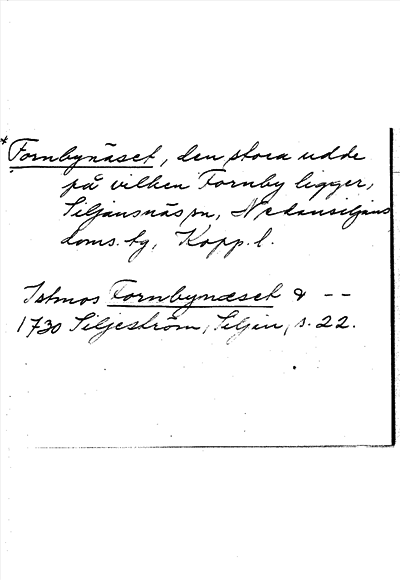 *Fornbynäset, den stora udde
på vilken Fornby ligger,
Siljansnäs sn, Nedansiljans
doms. tg, Kopp. l.
Istmos Fornbynæset & --
1730 Siljeström, Siljin, s. 22.